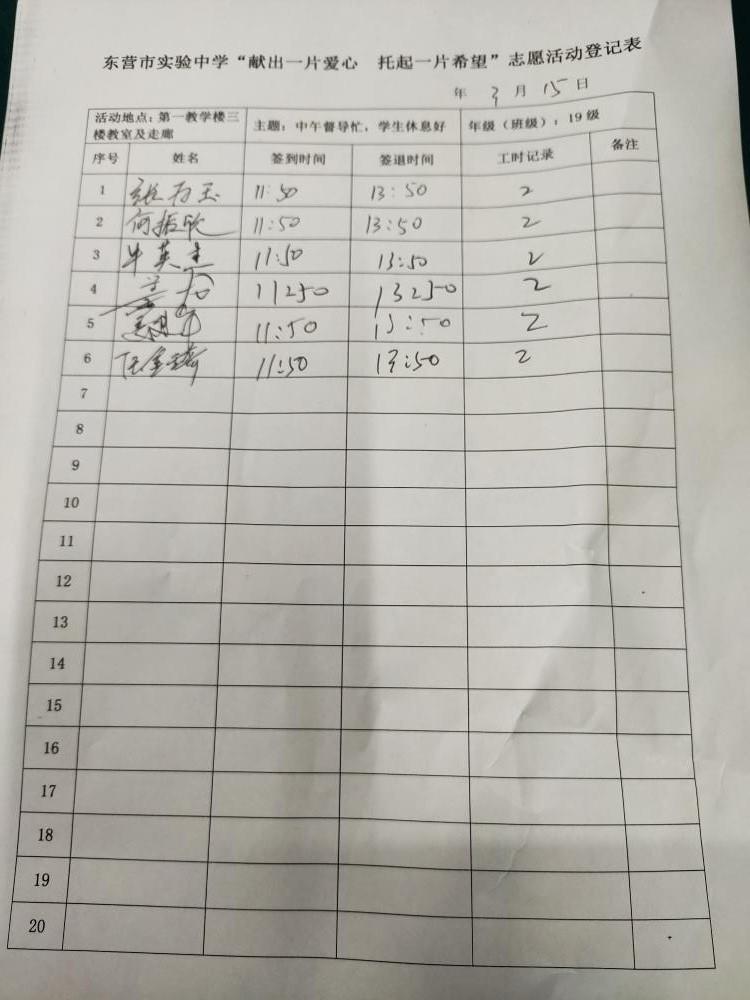 东营市实验中学“献出一片爱心 托起一片希望”志愿活动登记表
年 3 月 15 日
活动地点：第一教学楼三楼教室及走廊 主题：中午督导忙，学生休息好 年级（班级）：19级 备注
序号 姓名 签到时间 签退时间 工时记录
1 11:50 13:50 2
2 何振欣 11:50 13:50 2
3 牛英杰 11:50 13:50 2
4 11:50 13:50 2
5 11:50 13:50 2
6 11:50 13:50 2
7
8
9
10
11
12
13
14
15
16
17
18
19
20